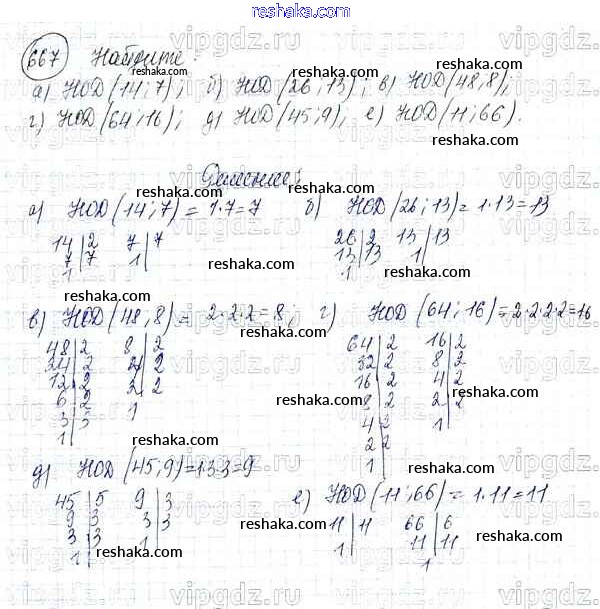 reshaka.com
667 Найдите:
а) НОД (14; 7); б) НОД (26; 13); в) НОД (48; 8);
г) НОД (64; 16); д) НОД (45; 9); е) НОД (11; 66).
Решение:
а) НОД (14; 7) = 1·7 = 7 б) НОД (26; 13) = 1·13 = 13
14|2 7|7 26|2 13|13
7|7 1| 13|13 1|
1| 1|
в) НОД (48, 8) = 2·2·2 = 8; г) НОД (64; 16) = 2·2·2·2 = 16
48|2 8|2 64|2 16|2
24|2 4|2 32|2 8|2
12|2 2|2 16|2 4|2
6|2 1 8|2 2|2
3|3 4|2 1|
1| 2|2
1|
д) НОД (45; 9) = 1·3·3 = 9
45|5 9|3 е) НОД (11; 66) = 1·11 = 11
9|3 3|3 11|11 66|6
3|3 1| 1| 11|11
1| 1
reshaka.com
vipgdz.ru